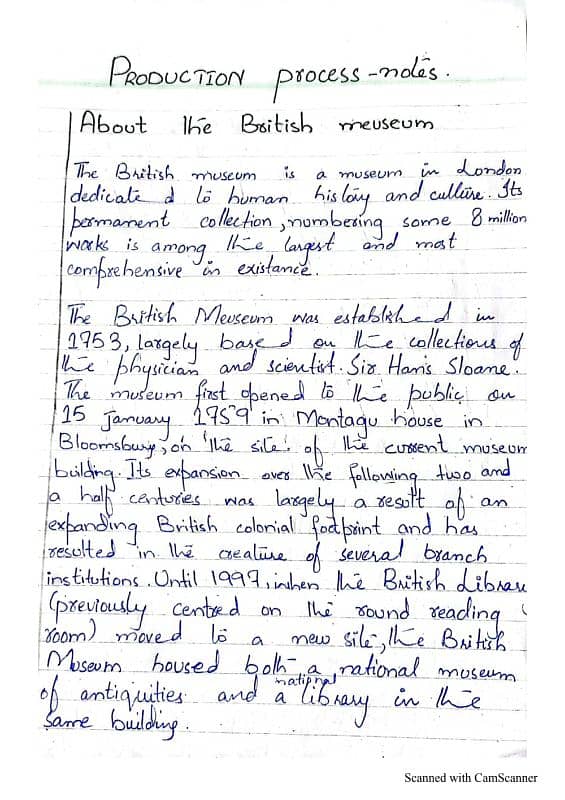 PRODUCTION process-notes.
About the British meuseum
The British museum is a museum in London
dedicate d to human history and culture. Its
permament collection, numbering some 8 million
works is among the largest and most
comprehensive in existance.
The British Meuseum was established in
1953, largely based on the collections of
the physician and scientist. Sir Hans Sloane.
The museum first opened to the public on
15 January 1959 in Montagu house in
Bloomsbury, on the site. of the current museum
building. Its expansion over the following two and
a half centuries was largely a result of an
expanding British colonial footprint and has
resulted in the creature of several branch
institutions. Until 1997, when the British Librar
(previously centred on the round reading
room) moved to a new site, the British
Museum housed both a national museum
of antiquities and a national library in the
same building.
Scanned with CamScanner